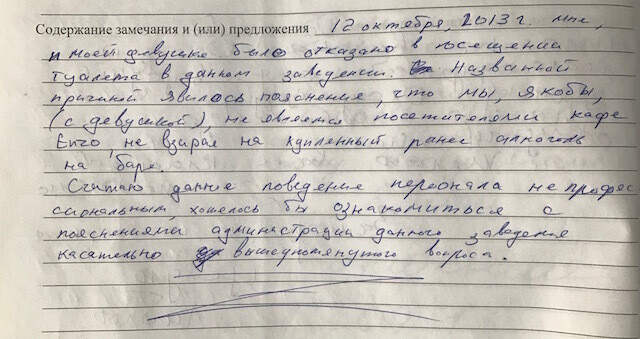 Содержание замечания и (или) предложения 12 октября, 2013 г. мне,
и моей девушке было отказано в посещении
туалета в данном заведении. Названной
причиной явилось пояснение, что мы, якобы,
(с девушкой), не являемся посетителями кафе
не взирая на купленный ранее алкоголь
на баре.
Считаю данное поведение персонала непрофес
сиональным, хотелось бы ознакомиться с
пояснениями администрации данного заведения
касательно вышеупомянутого вопроса.